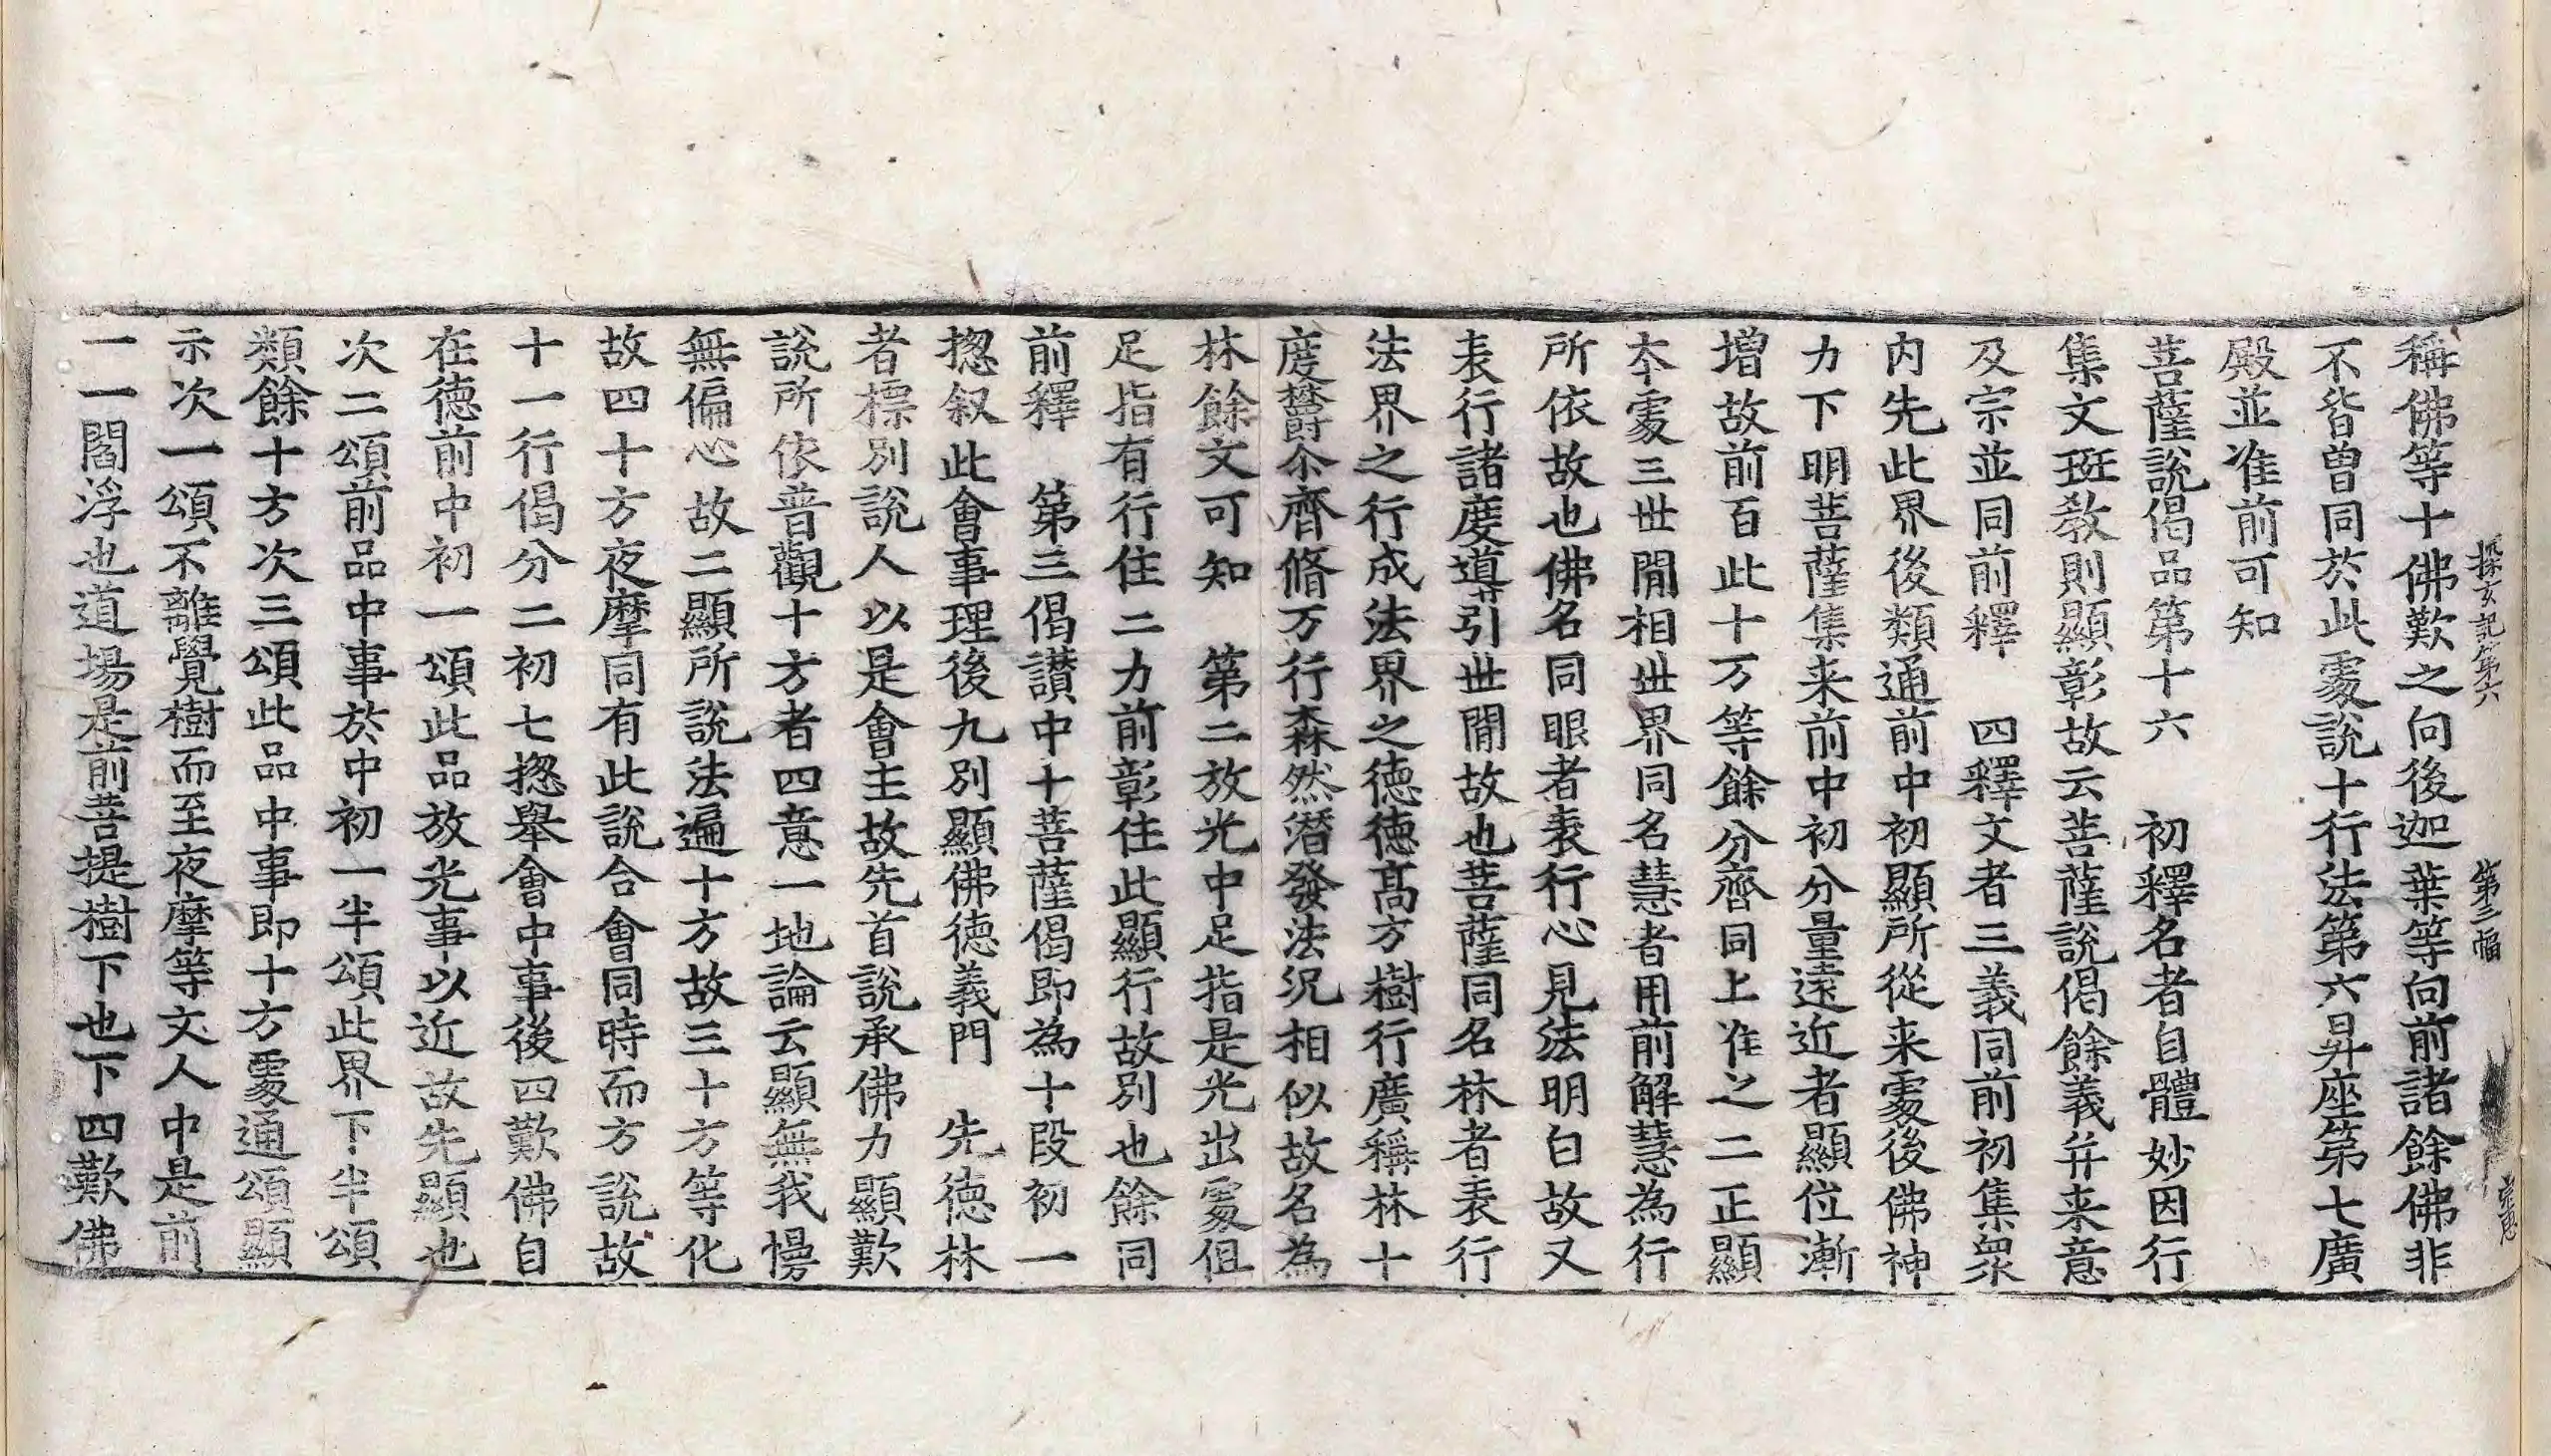 探玄記第六　第三幅　宗忠
稱佛等十佛歎之向後迦葉等向前諸餘佛非
不皆曽同於此䖏說十行法第六昇座第七廣
殿並准前可知
菩薩說偈品第十六　初釋名者自體妙因行
集文班教則顯彰故云菩薩說偈餘義并来意
及宗並同前釋　四釋文者三義同前初集衆
内先此界後類通前中初顯所從来䖏後佛神
力下明菩薩集来前中初分量遠近者顯位漸
增故前百此十万等餘分齊同上准之二正顯
本䖏三世間相世界同名慧者用前解慧為行
所依故也佛名同眼者表行心見法明白故又
表行諸度導引世間故也菩薩同名林者表行
法界之行成法界之德德髙方樹行廣稱林十
度欝尒齊脩万行森然潜發法況相似故名為
林餘文可知　第二放光中足指是光出䖏伹
足指有行住二力前彰住此顯行故別也餘同
前釋　第三偈讃中十菩薩偈即為十段初一
揔叙此會事理後九別顯佛德義門　先德林
者標別說人以是會主故先首說承佛力顯歎
說所依普觀十方者四意一地論云顯無我慢
無偏心故二顯所說法遍十方故三十方等化
故四十方夜摩同有此說合會同時而方說故
十一行偈分二初七揔舉會中事後四歎佛自
在德前中初一頌此品放光事以近故先顯也
次二頌前品中事於中初一半頌此界下半頌
類餘十方次三頌此品中事即十方䖏通頌顯
示次一頌不離覺樹而至夜摩等文人中是前
一一閻浮也道場是前菩提樹下也下四歎佛